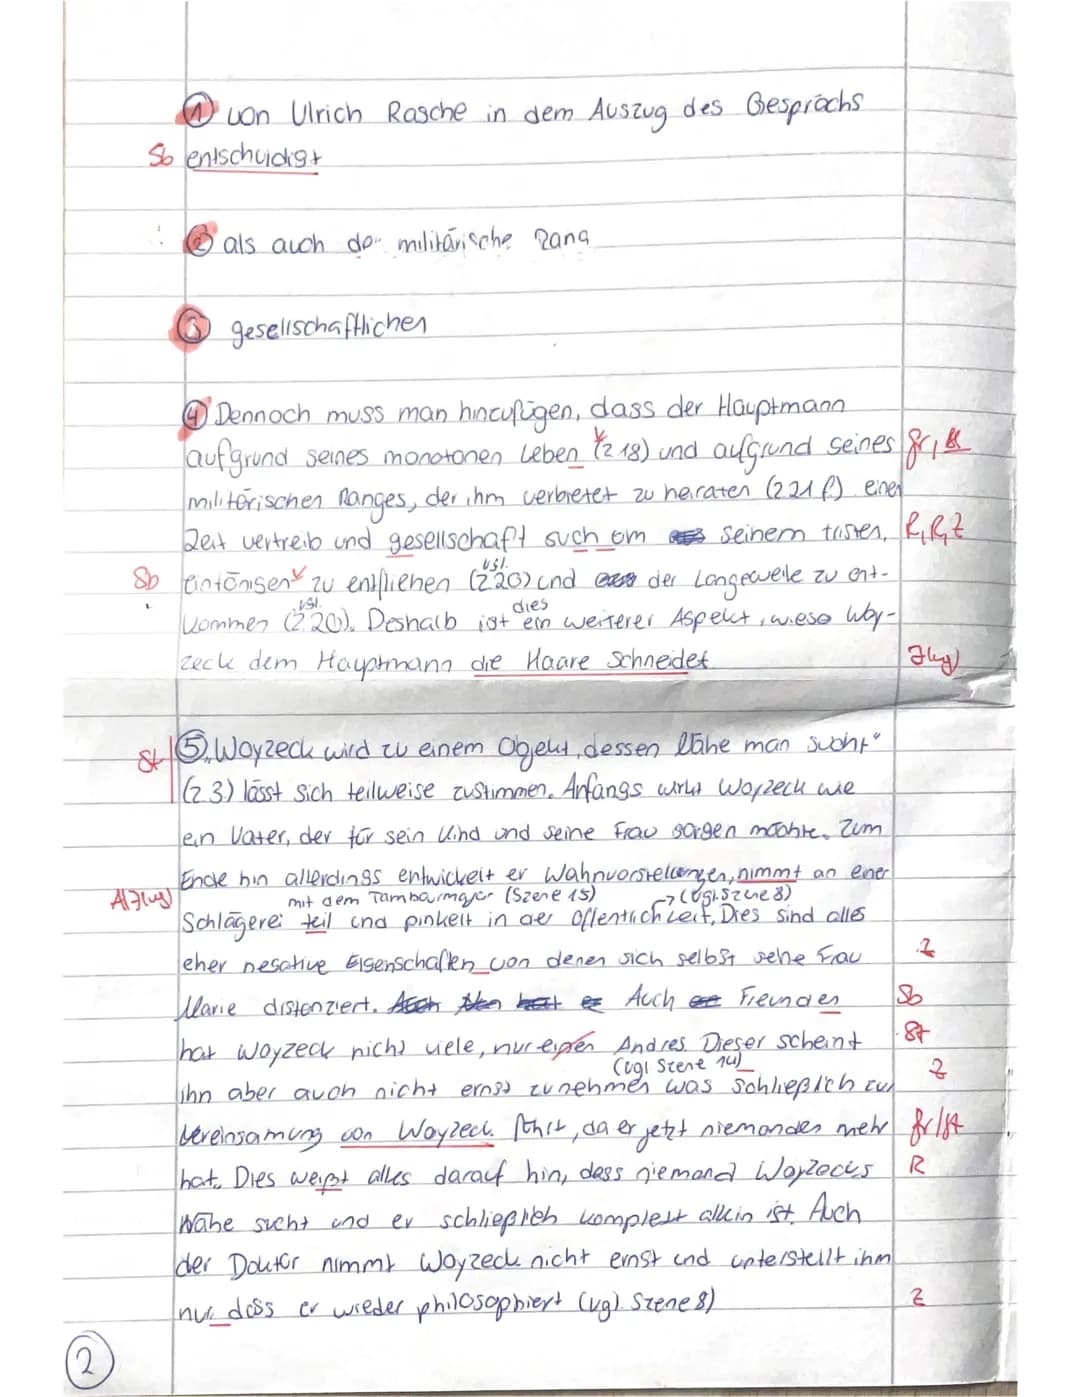 ① von Ulrich Rasche in dem Auszug des Gesprächs
Sb entschuidigt
② als auch der militärische Rang
③ gesellschaftlichen
④ Dennoch muss man hinzufügen, dass der Hauptmann
aufgrund seines monotonen Leben (Z 18) und aufgrund seines Gr,
militärischen Ranges, der ihm verbietet zu heiraten (Z 21 f) einen
Zeit vertreib und gesellschaft such om seinem tristen, R,R,Z
Sb eintönigen zu entfliehen (vgl. Z 20) und der Langeweile zu ent-
kommen (vgl. Z 20). Deshalb ist dies ein weiterer Aspekt, wieso Woy-
zeck dem Hauptmann die Haare Schneidet
St ⑤ „Woyzeck wird zu einem Objekt, dessen Nähe man sucht"
(Z 3) lässt sich teilweise zustimmen. Anfangs wirkt Woyzeck wie
ein Vater, der für sein Kind und seine Frau sorgen möchte. Zum
Ende hin allerdings entwickelt er Wahnvorstellungen, nimmt an einer
mit dem Tambourmajor (Szene 15) → (vgl. Szene 8)
Schlägerei teil und pinkelt in der Öffentlichkeit, Dies sind alles
eher negative Eigenschaften von denen sich selbst sehe Frau Z
Marie distanziert. Auch Freunden Sb
hat Woyzeck nicht viele, nur einen Andres. Dieser scheint St
(vgl Szene 14)
ihn aber auch nicht ernst zunehmen was schließlich zur Z
Vereinsamung von Woyzeck führt, da er jetzt niemanden mehr Gr/St
hat. Dies weißt alles darauf hin, dass niemand Woyzecks R
Nähe sucht und er schließlich komplett allein ist. Auch
der Doktor nimmt Woyzeck nicht ernst und unterstellt ihm
nur dass er wieder philosophiert (vgl. Szene 8) Z
2